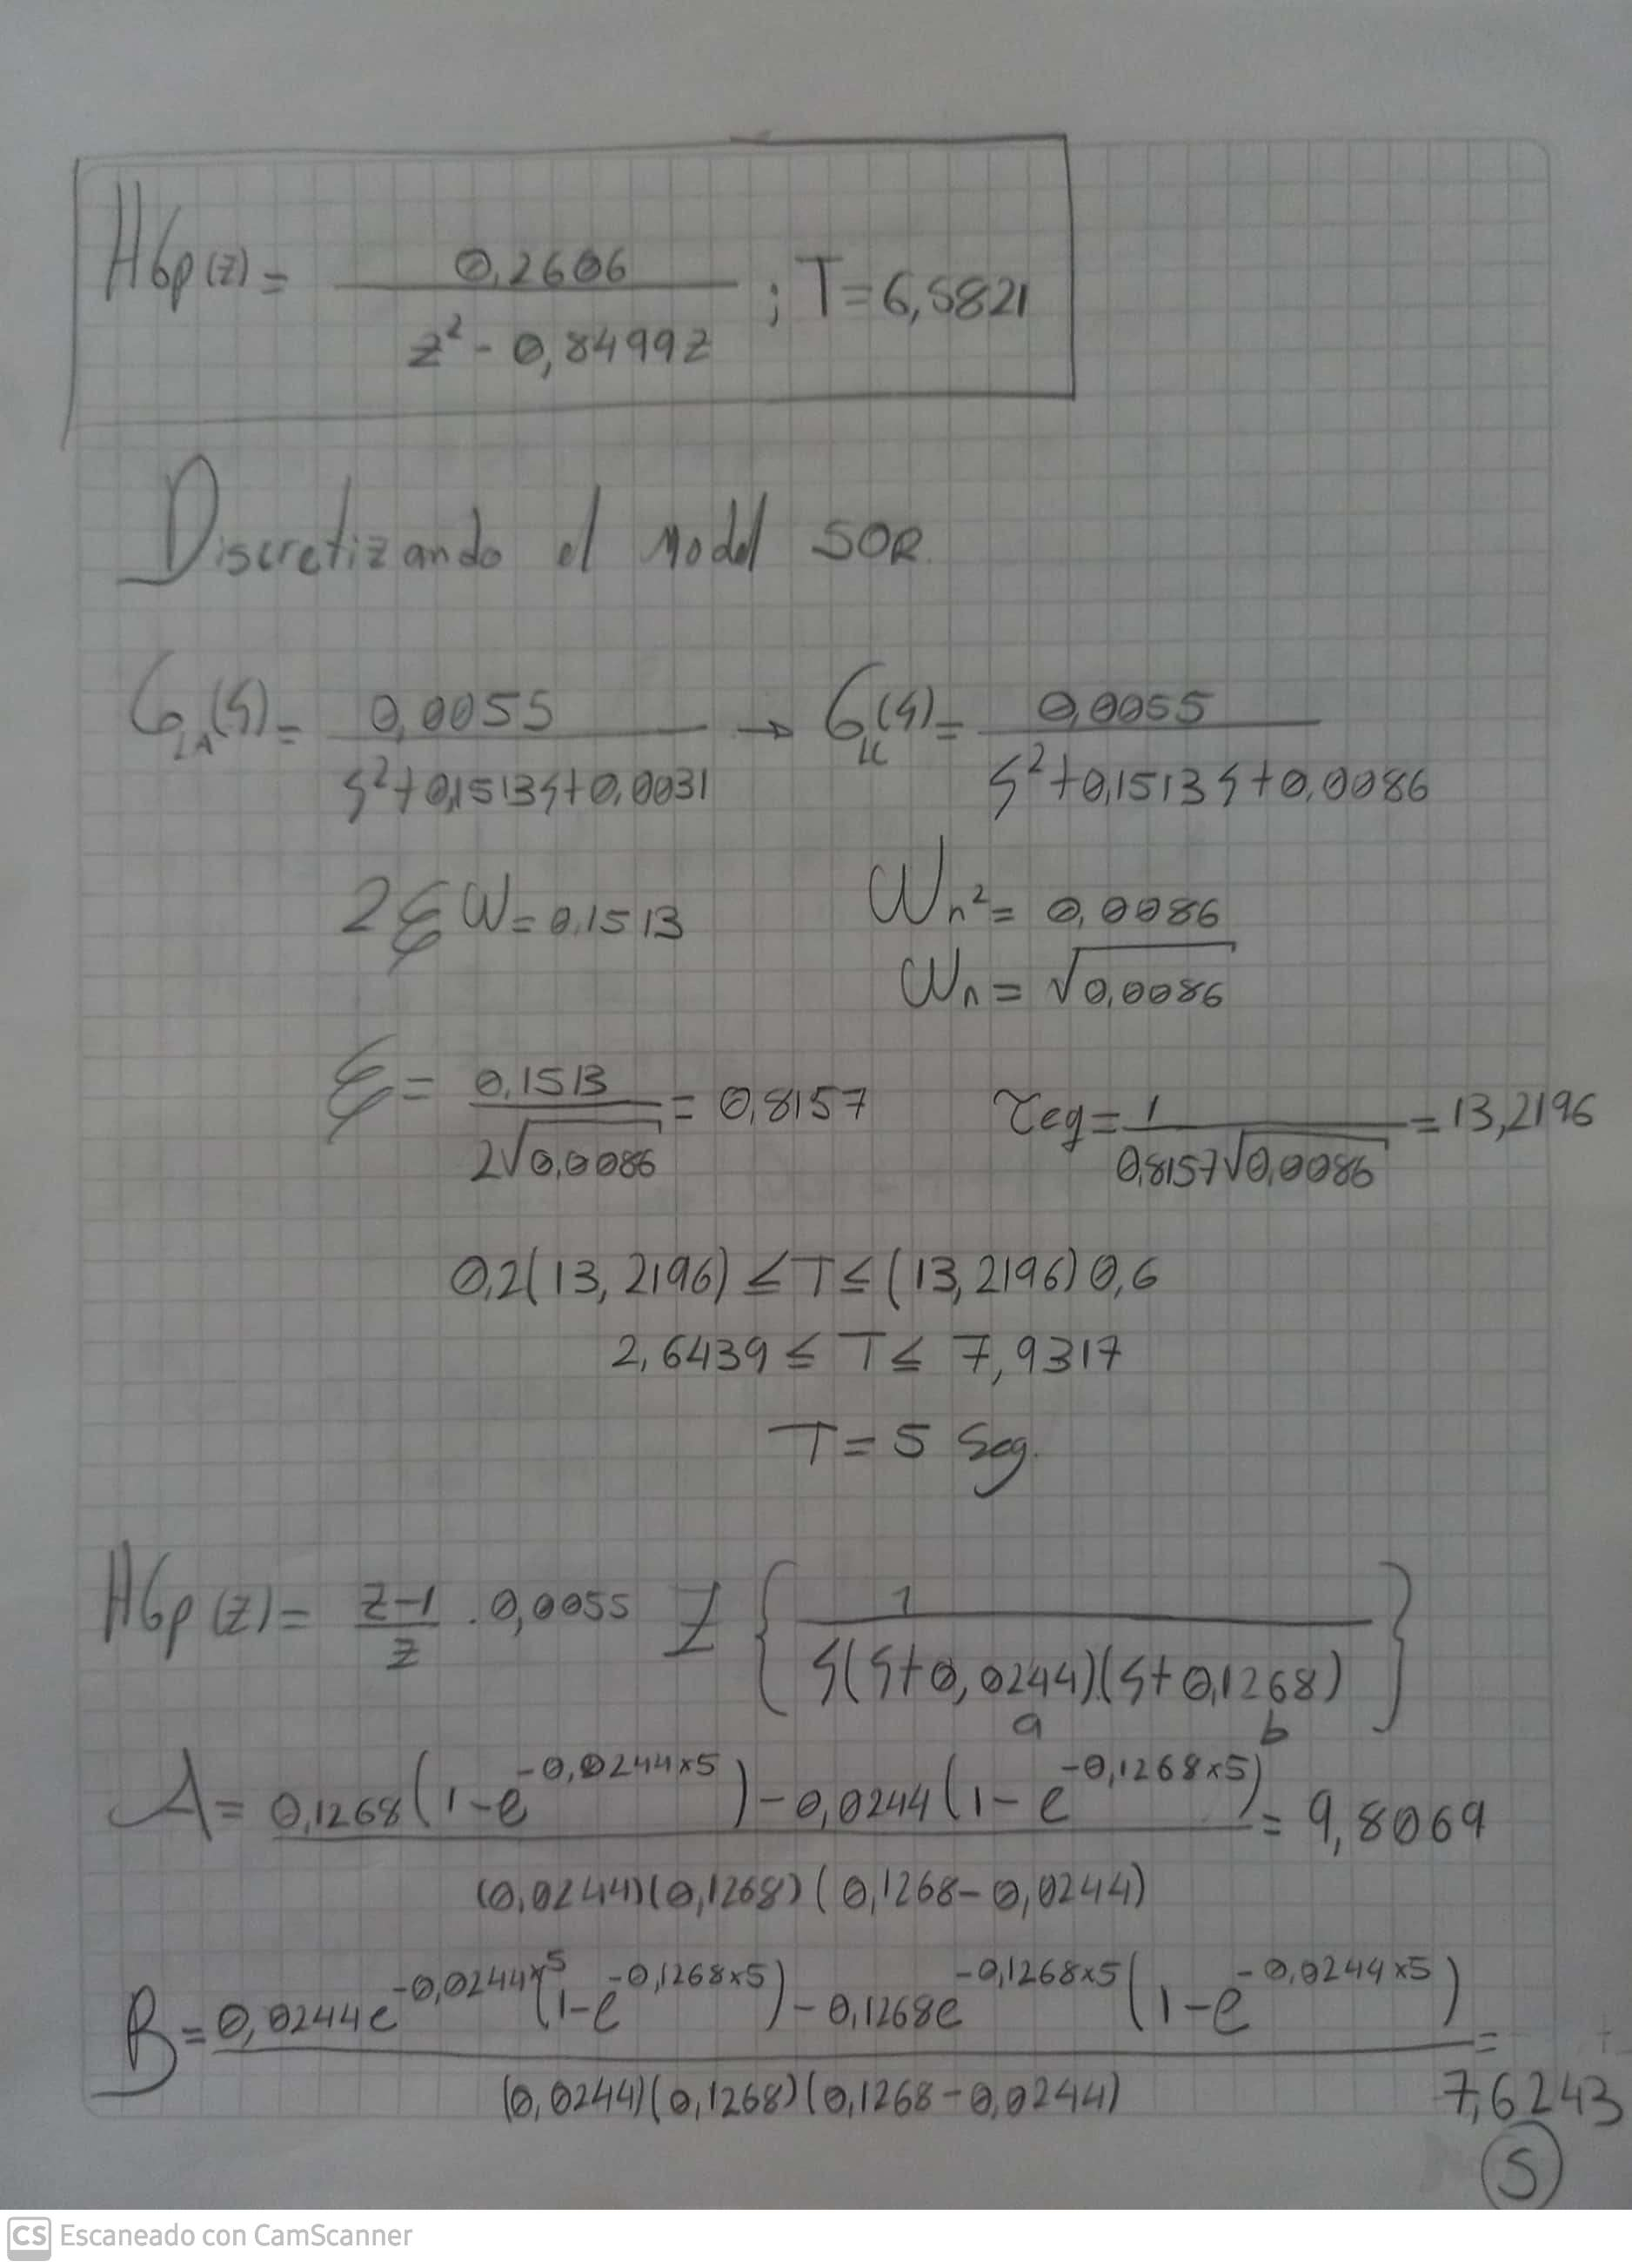 HGp(z) = 0,2606 / (z² - 0,8499z) ; T = 6,5821
Discretizando el Model SOR.
G_LA(s) = 0,0055 / (s² + 0,1513s + 0,0031) → G_LC(s) = 0,0055 / (s² + 0,1513s + 0,0086)
2ξW = 0,1513    Wn² = 0,0086
Wn = √0,0086
ξ = 0,1513 / (2√0,0086) = 0,8157    τeq = 1 / (0,8157√0,0086) = 13,2196
0,2(13,2196) ≤ T ≤ (13,2196)0,6
2,6439 ≤ T ≤ 7,9317
T = 5 Seg.
HGp(z) = (z-1)/z · 0,0055 Z { 1 / (s(s+0,0244)(s+0,1268)) }
a b
A = [0,1268(1-e^(-0,0244x5)) - 0,0244(1-e^(-0,1268x5))] / [(0,0244)(0,1268)(0,1268-0,0244)] = 9,8069
B = [0,0244e^(-0,0244x5)(1-e^(-0,1268x5)) - 0,1268e^(-0,1268x5)(1-e^(-0,0244x5))] / [(0,0244)(0,1268)(0,1268-0,0244)] = 7,6243
5
CS Escaneado con CamScanner